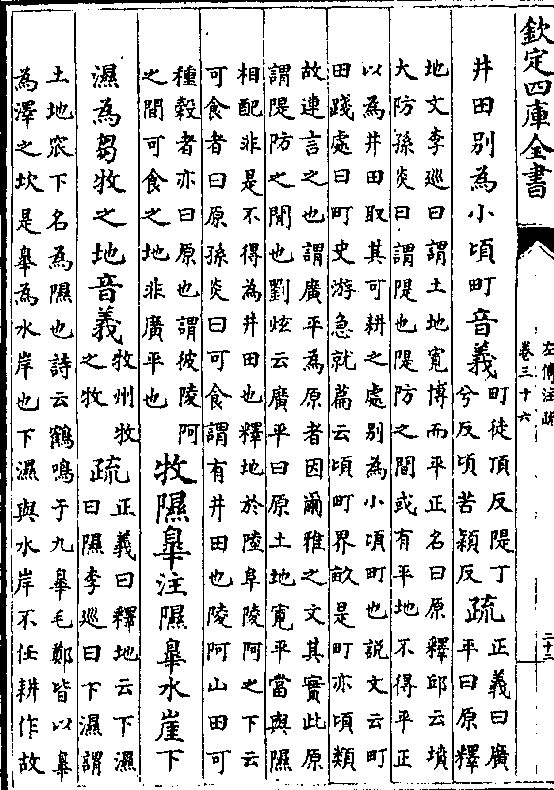 欽定四庫全書
左傳注疏
卷三十六
井田別為小頃町音義
町徒頂反隄丁
兮反頃苦穎反
疏
正義曰廣
平曰原釋
地文李廵曰謂土地寬博而平正名曰原釋邱云墳
大防孫炎曰謂隄也隄防之間或有平地不得平正
以為井田取其可耕之處別為小頃町也説文云町
田踐處曰町史游急就篇云頃町界畝是町亦頃類
故連言之也謂廣平為原者因爾雅之文其實此原
謂隄防之間也劉炫云廣平曰原土地寬平當與隰
相配非是不得為井田也釋地於陸阜陵阿之下云
可食者曰原孫炎曰可食謂有井田也陵阿山田可
種穀者亦曰原也謂彼陵阿
之間可食之地非廣平也
牧隰臯注隰臯水崖下
濕為芻牧之地音義
牧州牧
之牧
疏
正義曰釋地云下濕
曰隰李廵曰下濕謂
土地窊下名為隰也詩云鶴鳴于九臯毛鄭皆以臯
為澤之坎是臯為水岸也下濕與水岸不任耕作故